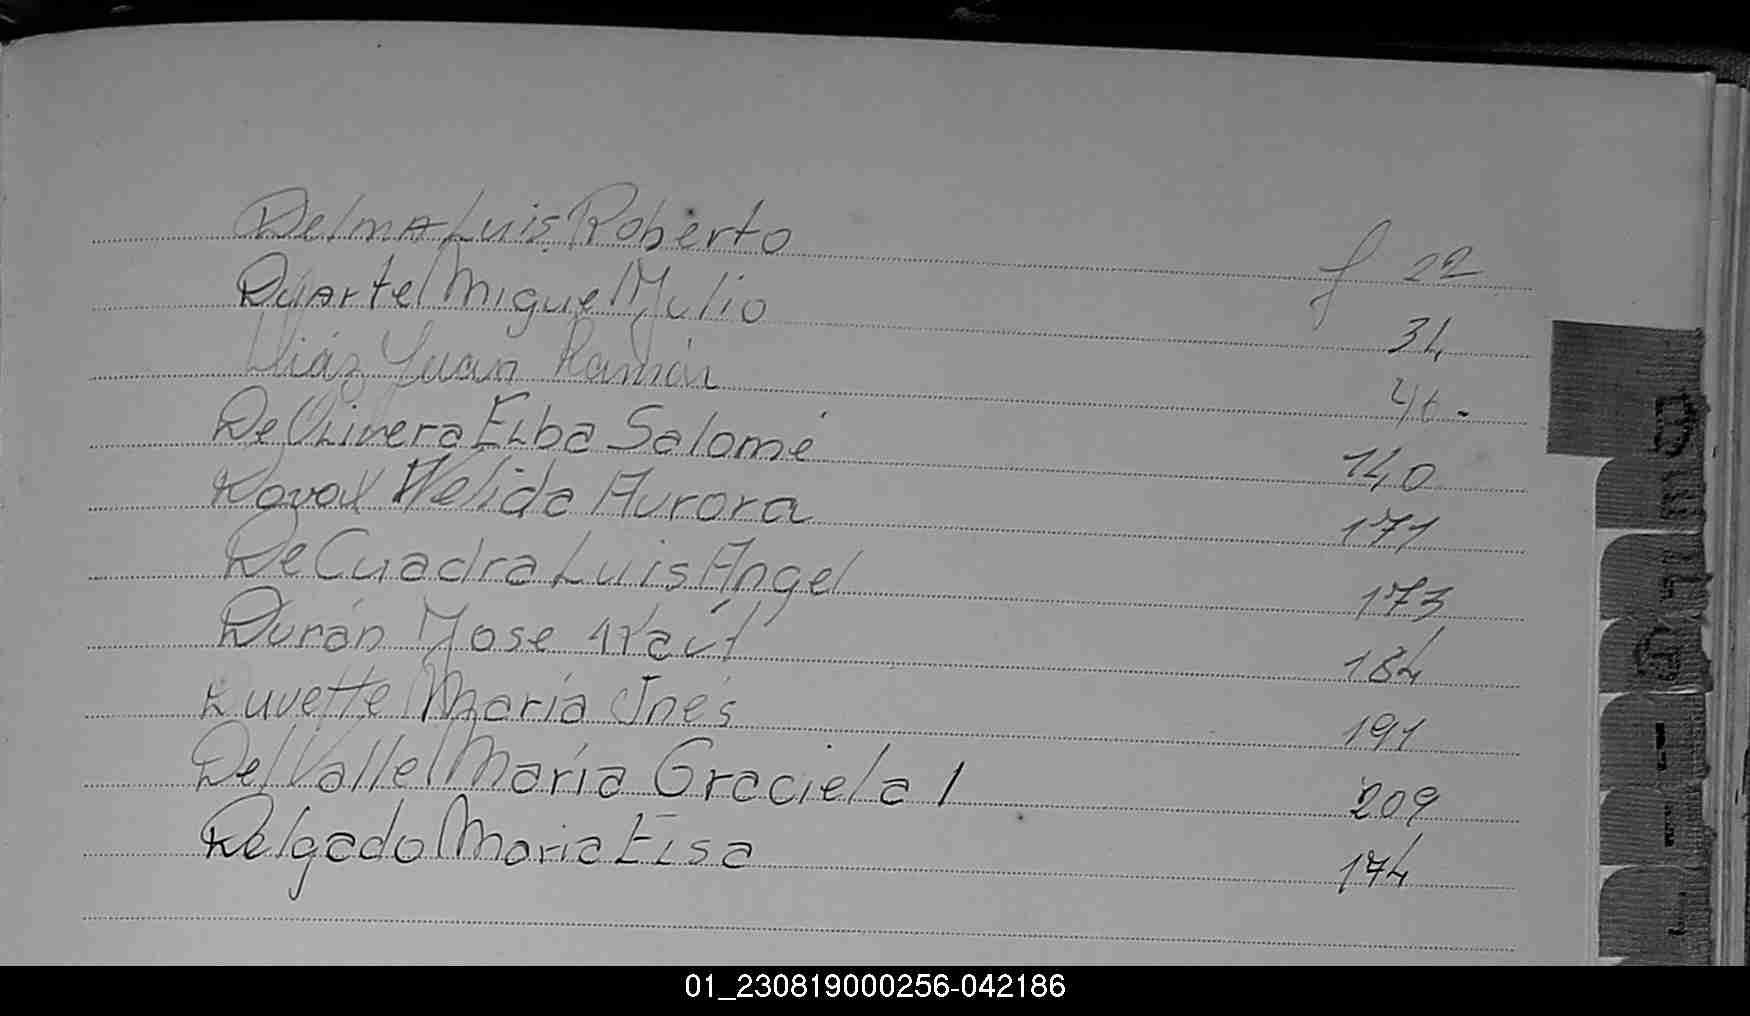 Delma Luis Roberto f 22
Duarte Miguel Julio 34
Diáz Juan Ramón 46.
De Olivera Elba Salomé 140
Nélida Aurora 171
De Cuadra Luis Angel 173
Durán Jose Raúl 184
Duvette María Inés 191
Del Valle María Graciela 209
Delgado Maria Elsa 174
D
01_230819000256-042186